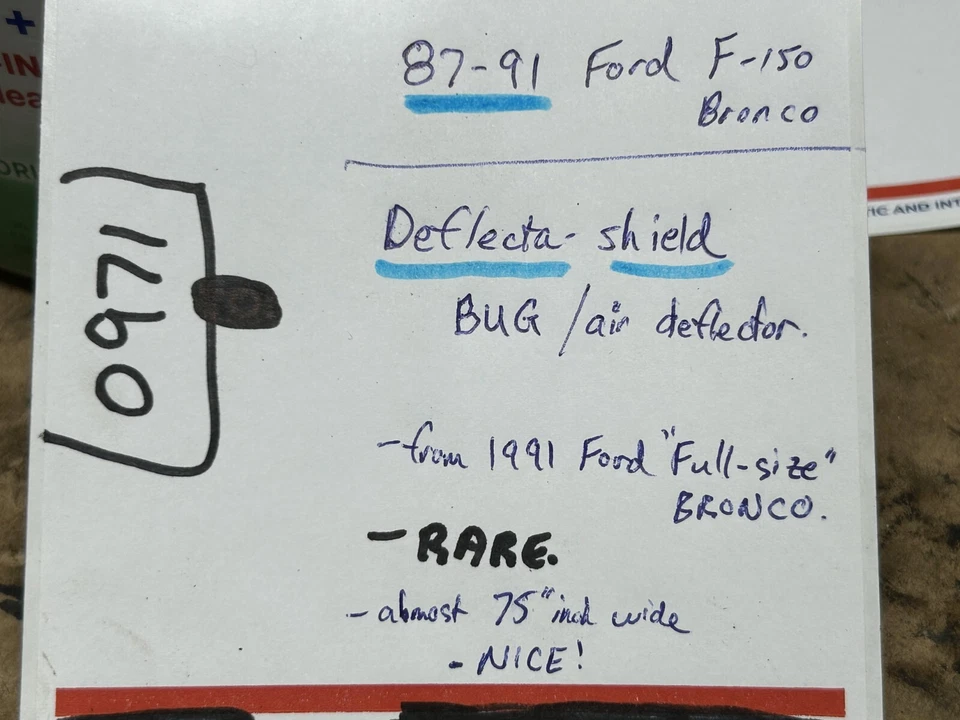 87-91 Ford F-150
Bronco
Deflecta-shield
BUG/air deflector.
-from 1991 Ford "Full-size"
BRONCO.
-RARE.
-almost 75" inch wide
-NICE!
0971
+
IN
lea
ORI
TIC AND INT